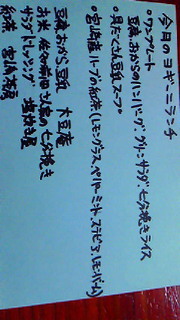 今月のヨギーニランチ
・ワンプレート
豆腐、おからのハンバーグ、グリーンサラダ、七分挽きライス
・具だくさん豆乳スープ
・宮崎産ハーブの紅茶(レモングラス、ペパーミント、ステビア、レモンバーム)
豆腐、おから、豆乳 大豆庵
お米 佐谷前田さん家の七分挽き
サラダドレッシング 塩焚き屋
紅茶 宮崎茶房